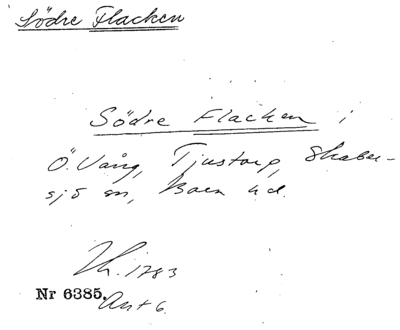 Södre Flacken
Södre Flacken i
Ö. Vång, Tjustorp, Skaber-
sjö sn, Bara hd.
Lh. 1783
Nr 6385. Ant 6.